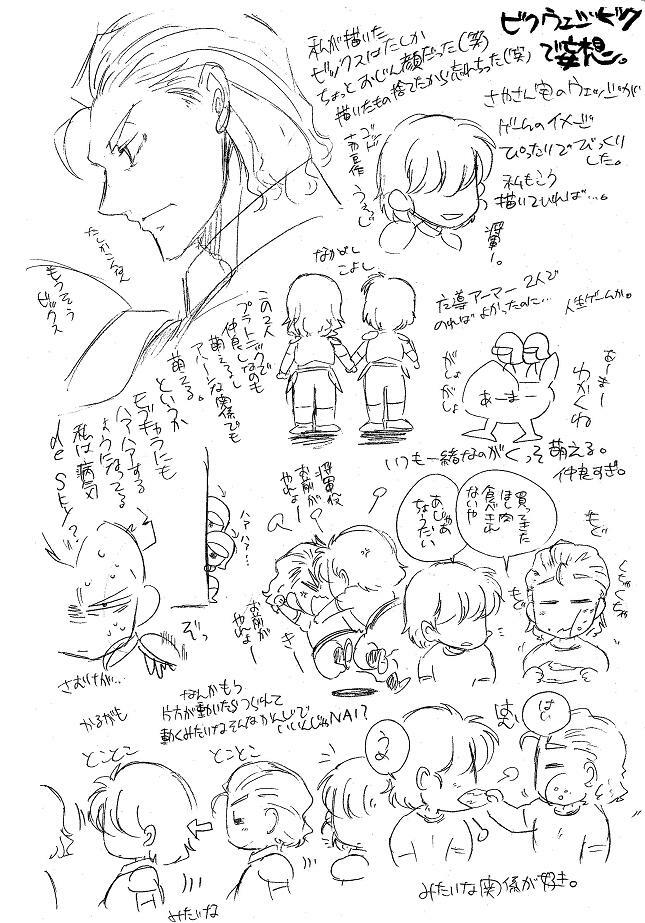 ビクウェジビック
で妄想。
私が描いた
ビックスはたしか
ちょっとおじん顔だった(笑)
描いたもの捨てたから忘れちった(笑)
さやさん宅のウェッジが
ゲームのイメージ
ぴったりでびっくり
した。
私もこう
描いてびんば…。
もうそう
ビックス
なかよし
こよし
この2人
プラトニックで
仲良しなのも
萌えるし
アハーンな関係でも
萌える。
というか
モブキャラにも
ハアハアする
ようになってる
私は病気
de SKY?
魔導アーマー2人で
のればよかったのに…
人生ゲームか。
がしょ
がしょ
あーまー
いつも一緒なのがくって萌える。
仲良すぎ。
買ってきた
ほし肉
食べきれ
ないや
あじゃあ
ちょうだい
もぐ
もぐ
くちゃくちゃ
将軍役
お前が
やれよー
お前が
やれよー
きー
ハァハァ…
ぞっ
さむけが…
なんかもう
片方が動いたらつられて
動くみたいなそんなかんじで
いいんじゃNAI?
かるがも
とことこ
とことこ
みたいな
うめ
はい
みたいな(笑)係が好き。